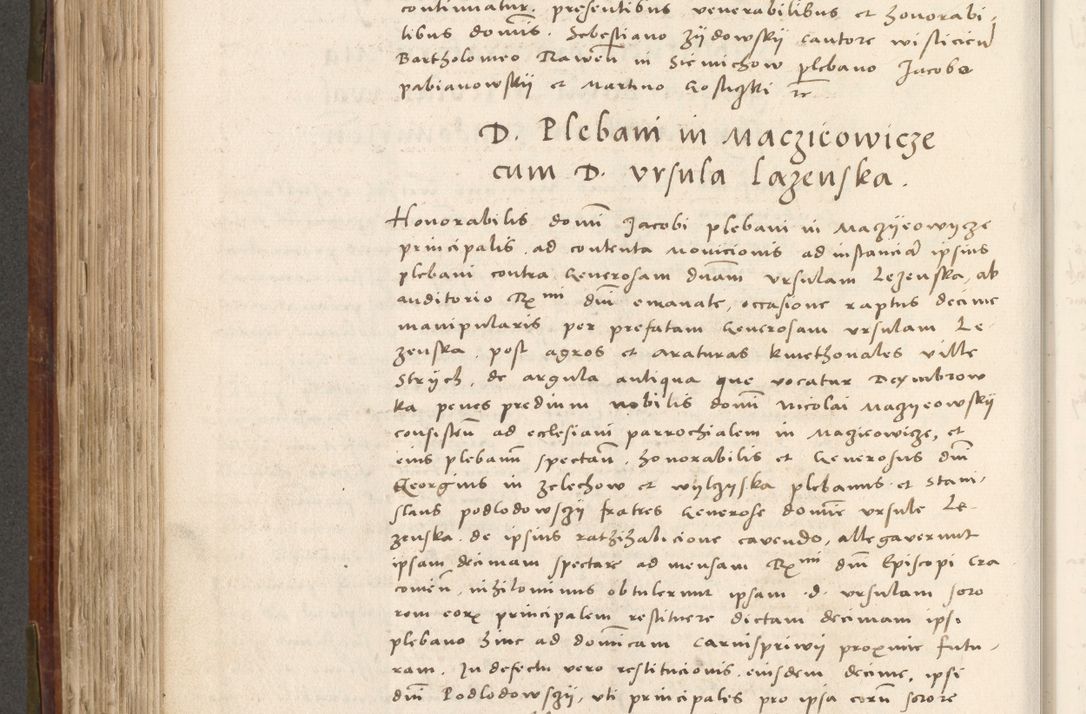 continuatur. presentibus venerabilibus et honorabi-
libus dominis. Sebestiano Zÿdowskÿ Cantore wislicien
Bartholomeo Rawen in Siemichow plebano Jacobo
pabianowskÿ et Martino Goslizki etc
D. Plebani in Maczieowicze
cum D. Vrsula Lazenska.
Honorabilis domi Jacobi plebani in Maczÿeowycze
principalis. ad contenta monicionis ad instancia ipsius
plebani contra Generosam dnam Vrsulam Lezenska, ab
auditorio Rmi dni emanate, occasione raptus decime
manipularis per prefatam Generosam Vrsulam Le-
zenska. post agros et araturas kmethonales ville
Strÿch, de argula antiqua que vocatur Deymbrow
ka penes predium nobilis domi Nicolai Maczyeowskÿ
consisten ad ecclesiam parrochialem in Maczieowicze, et
eius plebanum spectan. honorabilis et Generosus dni
Georgius in Zelechow et wÿlczyska plebanus et Stani-
slaus podlodowszÿ fratres Generose domine Vrsule Le-
zenska. de ipsius rathihabicione cavendo, allegaverunt
ipsam decimam spectare ad mensam Rmi dni Episcopi Cra
covien, nihilominus obtulerunt ipsam .d. Vrsulam soro
rem eorum principalem restituere dictam decimam ipsi
plebano hinc ad dominicam Carnispriwÿ proxime futu-
ram. In defectu vero restitucionis eiusdem decime, ipsi
dni Podlodowszÿ, uti principales pro ipsa eorum sorore